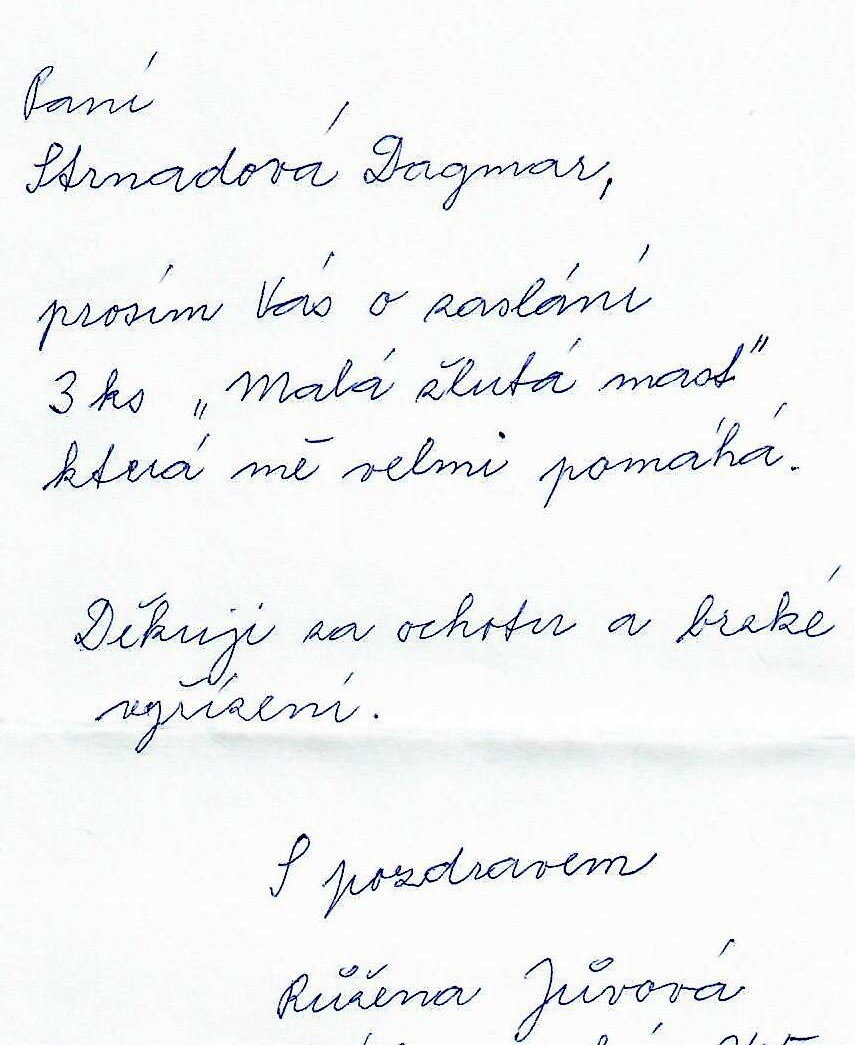 Paní
Strnadová Dagmar,
prosím Vás o zaslání
3 ks „Malá žlutá mast"
která mě velmi pomáhá.
Děkuji za ochotu a brzké
vyřízení.
S pozdravem
Růžena Jůvová